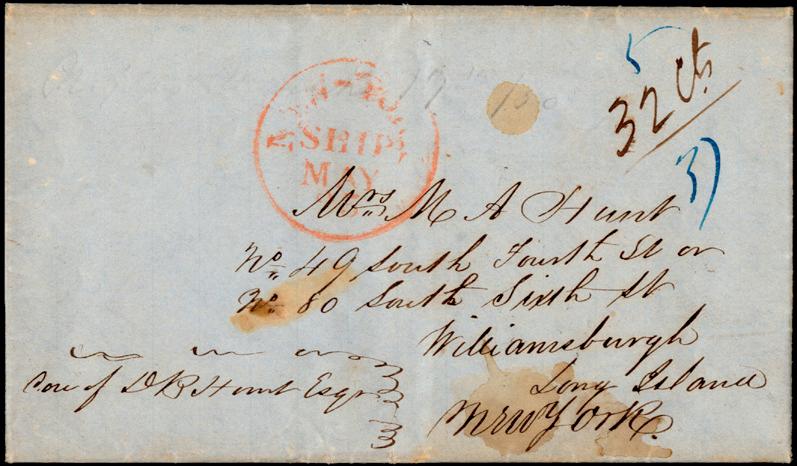 5
32 Cts
37
NEW-YORK
SHIP
MAY
Mrs M A Hunt
No. 49 South Fourth St or
No. 80 South Sixth St
Williamsburgh
Long Island
New York.
Care of D R Hunt Esqr